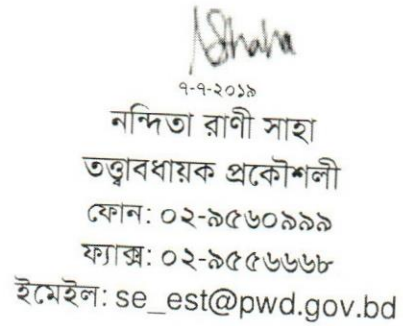 AShaha
৭-৭-২০১৯
নন্দিতা রাণী সাহা
তত্ত্বাবধায়ক প্রকৌশলী
ফোন: ০২-৯৫৬০৯৯৯
ফ্যাক্স: ০২-৯৫৫৬৬৬৮
ইমেইল: se_est@pwd.gov.bd